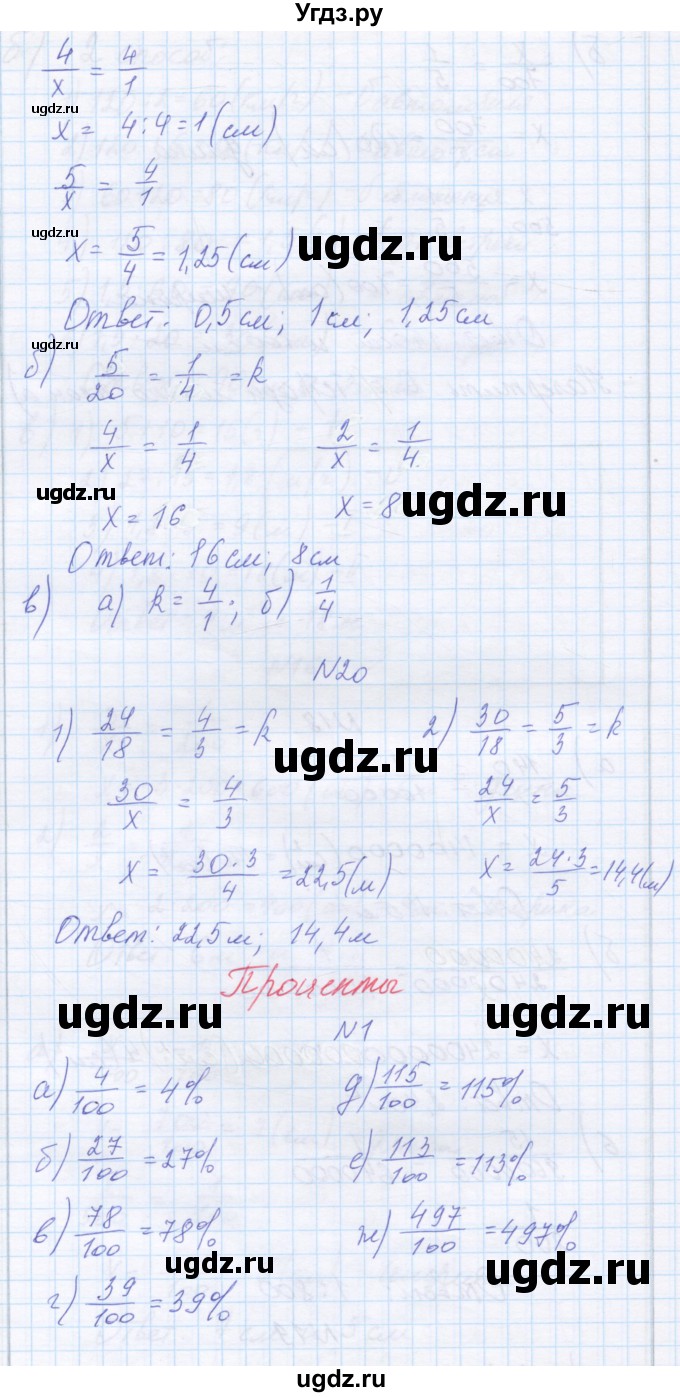 Угдз.ру
4/x = 4/1
ugdz.ru
x = 4:4=1(см)
5/x = 4/1
ugdz.ru
x = 5/4 = 1,25(см) ugdz.ru
Ответ: 0,5см; 1см; 1,25см
ugdz.ru
б) 5/20 = 1/4 = k
4/x = 1/4 2/x = 1/4
ugdz.ru ugdz.ru
x = 16 x = 8
Ответ: 16см; 8см
в) а) k = 4/1; б) 1/4
N20
1) 24/18 = 4/3 = k 2) 30/18 = 5/3 = k
ugdz.ru
30/x = 4/3 24/x = 5/3
x = 30·3/4 = 22,5(м) x = 24·3/5 = 14,4(м)
Ответ: 22,5м; 14,4м
Проценты
ugdz.ru ugdz.ru
N1
а) 4/100 = 4% д) 115/100 = 115%
ugdz.ru
б) 27/100 = 27% е) 113/100 = 113%
в) 78/100 = 78% ж) 497/100 = 497%
ugdz.ru ugdz.ru
г) 39/100 = 39%
ugdz.ru